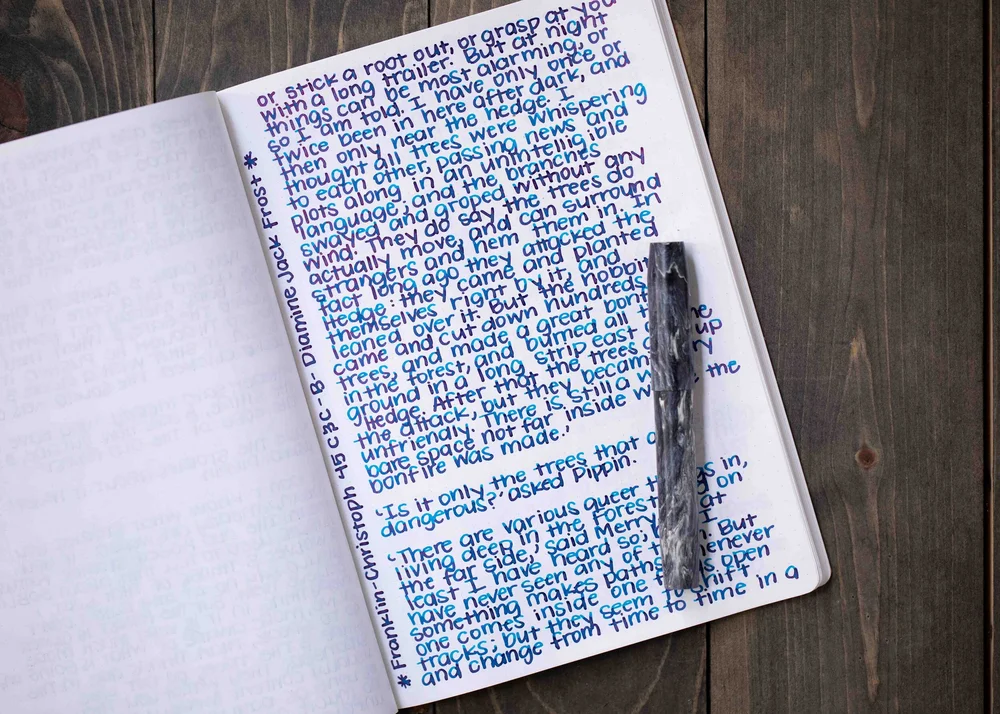 or stick a root out, or grasp at you
with a long trailer. But at night
things can be most alarming, or
so I am told. I have only once or
twice been in here after dark, and
then only near the hedge. I
thought all trees were whispering
to each other, passing news and
plots along in an unintelligible
language, and the branches
swayed and groped without any
wind. They do say the trees do
actually move, and can surround
strangers and hem them in. In
fact long ago they attacked the
Hedge: they came and planted
themselves right by it, and
leaned over it. But the hobbit
came and cut down hundreds
trees, and made a great bonf he
in the forest, and burned all t up
ground in a long strip east
Hedge. After that the trees y
the attack, but they becam the
unfriendly. There is still a w
bare space not far inside w
bonfire was made.'
'Is it only the trees that a
dangerous?' asked Pippin.
'There are various queer t gs in,
living deep in the Forest on
the far side,' said Merry at
least I have heard so; I
have never seen any of t But
something makes paths enever
one comes inside one is open
tracks; but they seem to shift
and change from time to time in a
* Franklin-Christoph 45 c p c - B - Diamine Jack Frost *